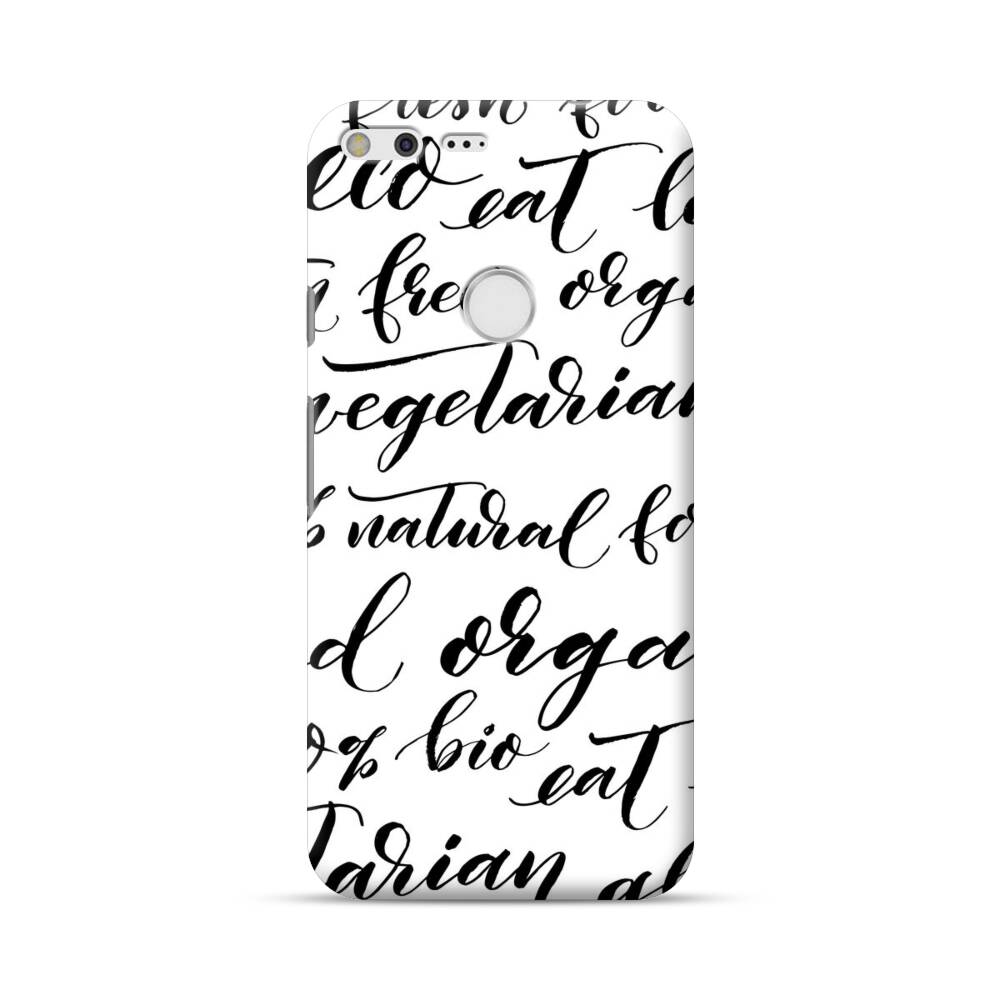 fresh
eco eat
free orga
vegetarian
% natural fo
d organ
0% bio eat
tarian